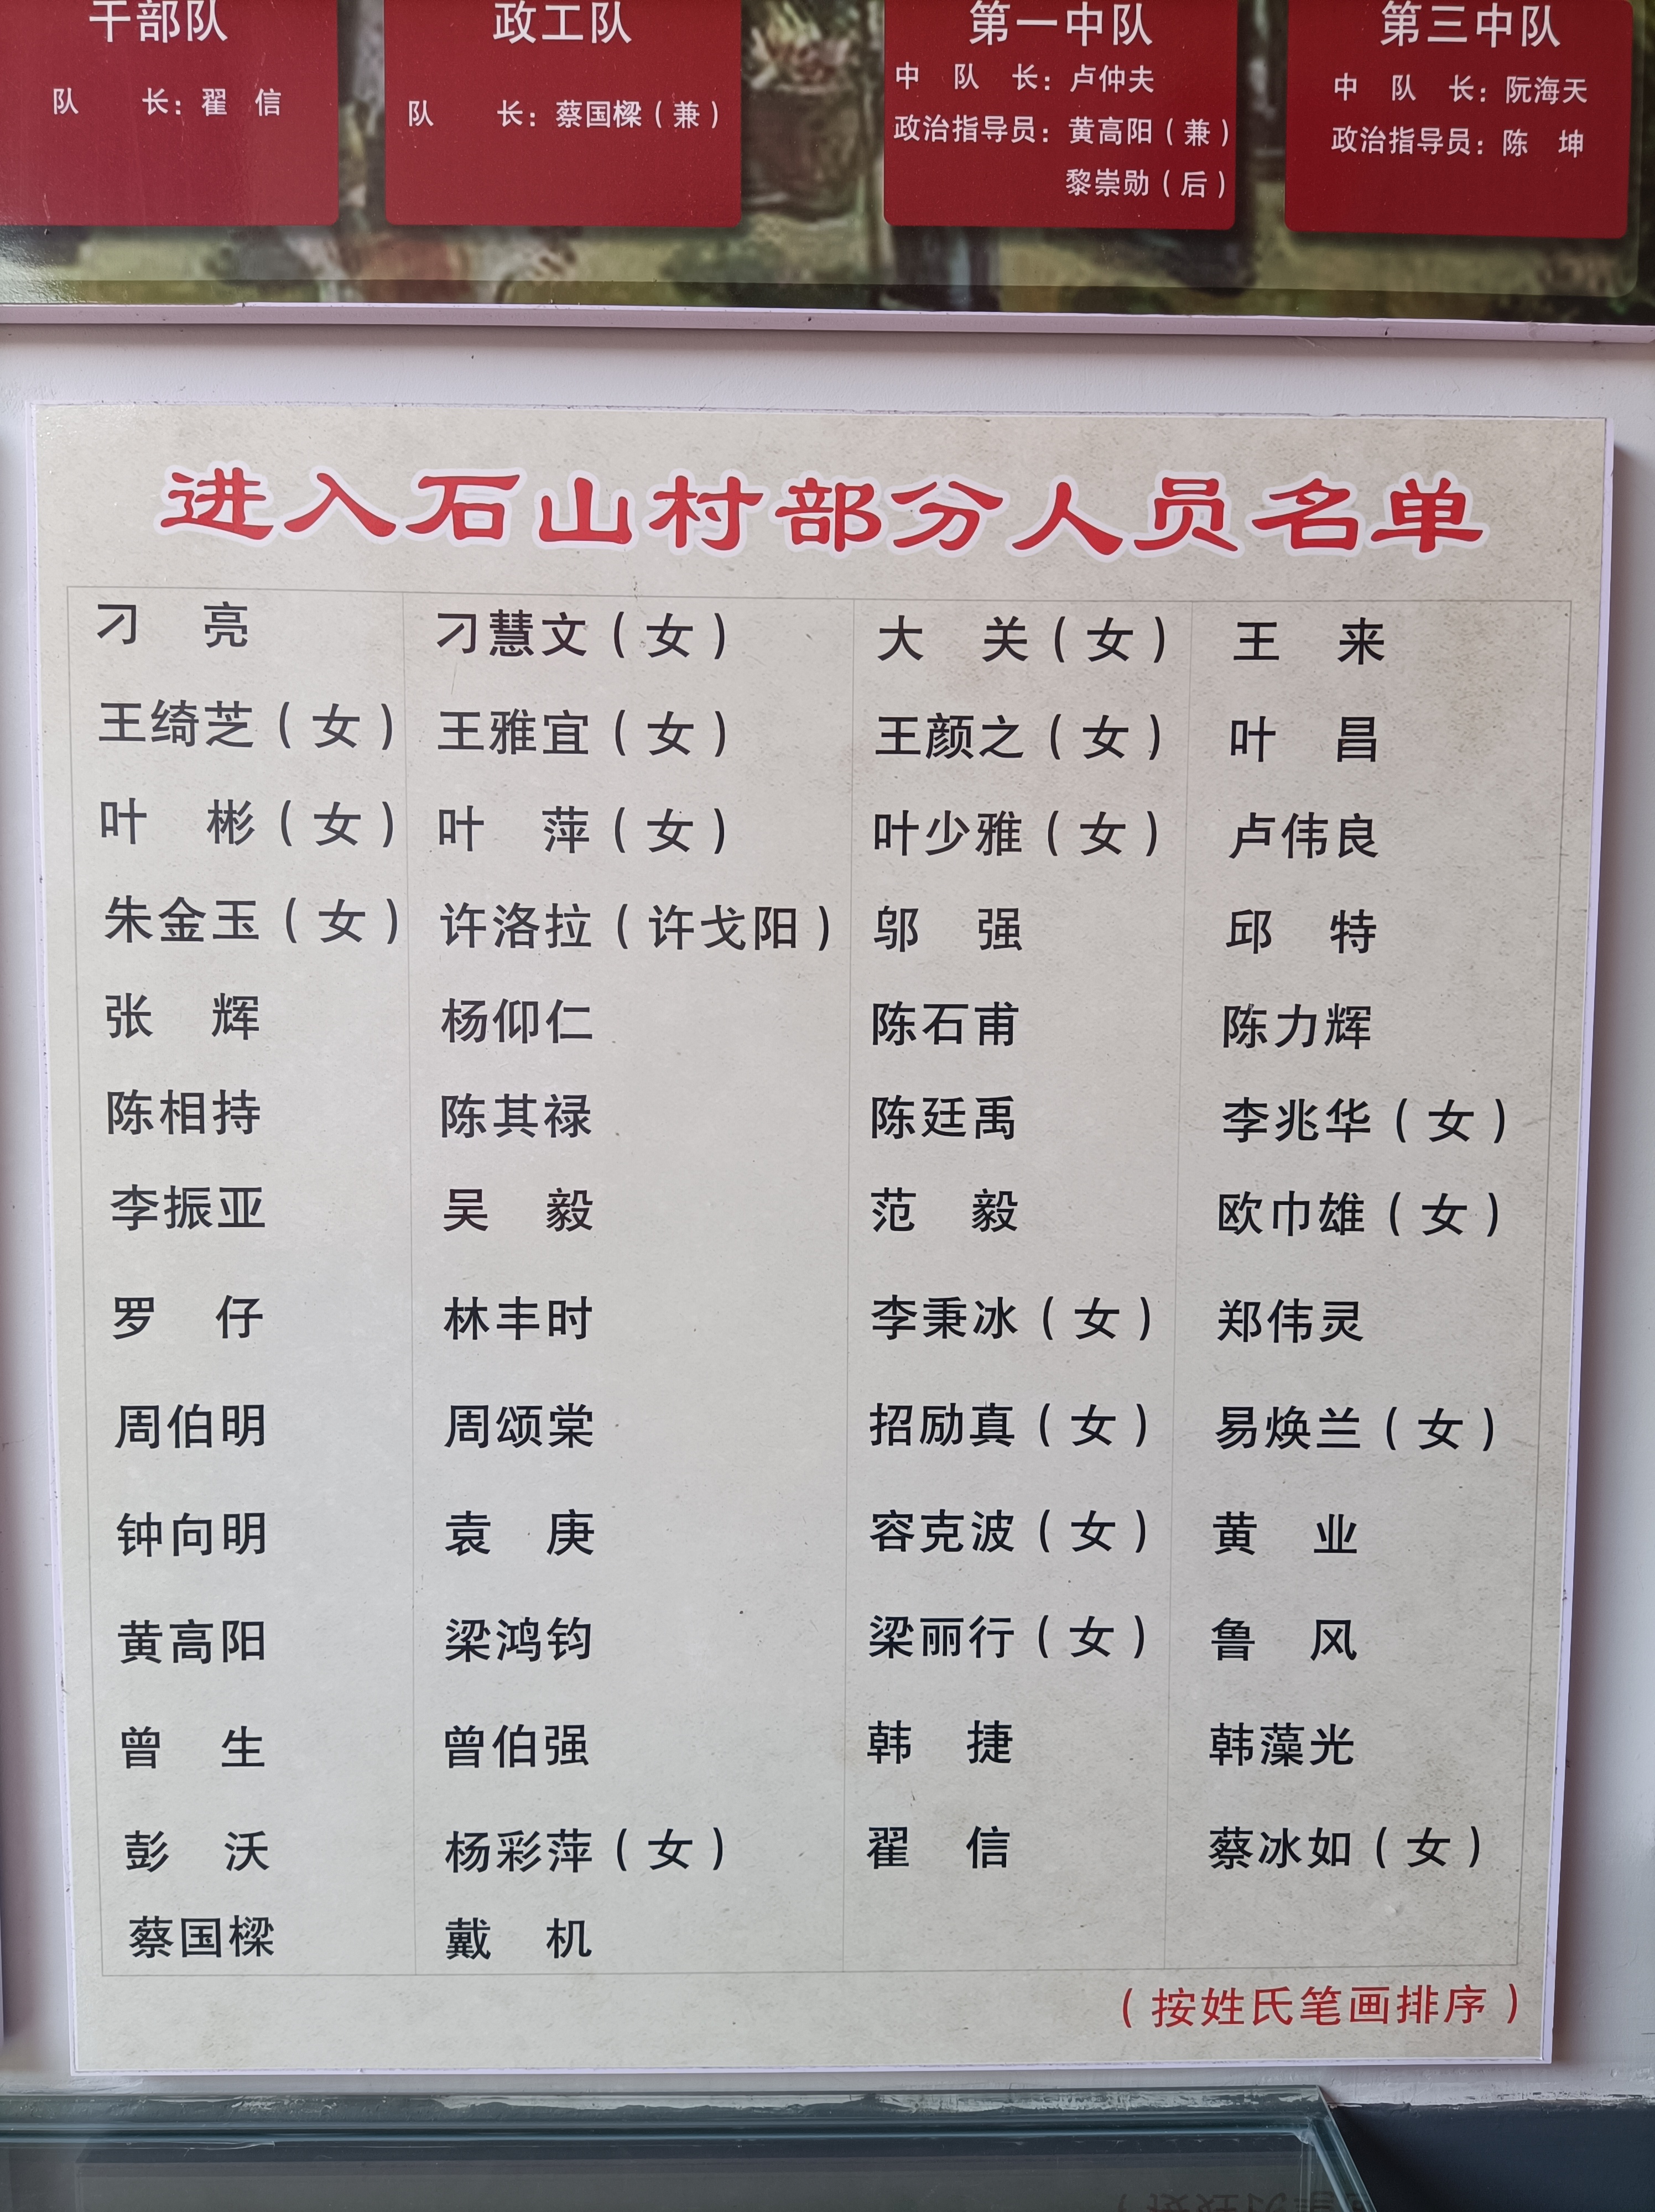 干部队
队 长：翟 信
政工队
队 长：蔡国樑（兼）
第一中队
中 队 长：卢仲夫
政治指导员：黄高阳（兼）
黎崇勋（后）
第三中队
中 队 长：阮海天
政治指导员：陈 坤
进入石山村部分人员名单
刁 亮 刁慧文（女） 大 关（女） 王 来
王绮芝（女） 王雅宜（女） 王颜之（女） 叶 昌
叶 彬（女） 叶 萍（女） 叶少雅（女） 卢伟良
朱金玉（女） 许洛拉（许戈阳） 邬 强 邱 特
张 辉 杨仰仁 陈石甫 陈力辉
陈相持 陈其禄 陈廷禹 李兆华（女）
李振亚 吴 毅 范 毅 欧巾雄（女）
罗 仔 林丰时 李秉冰（女） 郑伟灵
周伯明 周颂棠 招励真（女） 易焕兰（女）
钟向明 袁 庚 容克波（女） 黄 业
黄高阳 梁鸿钧 梁丽行（女） 鲁 风
曾 生 曾伯强 韩 捷 韩藻光
彭 沃 杨彩萍（女） 翟 信 蔡冰如（女）
蔡国樑 戴 机
（按姓氏笔画排序）